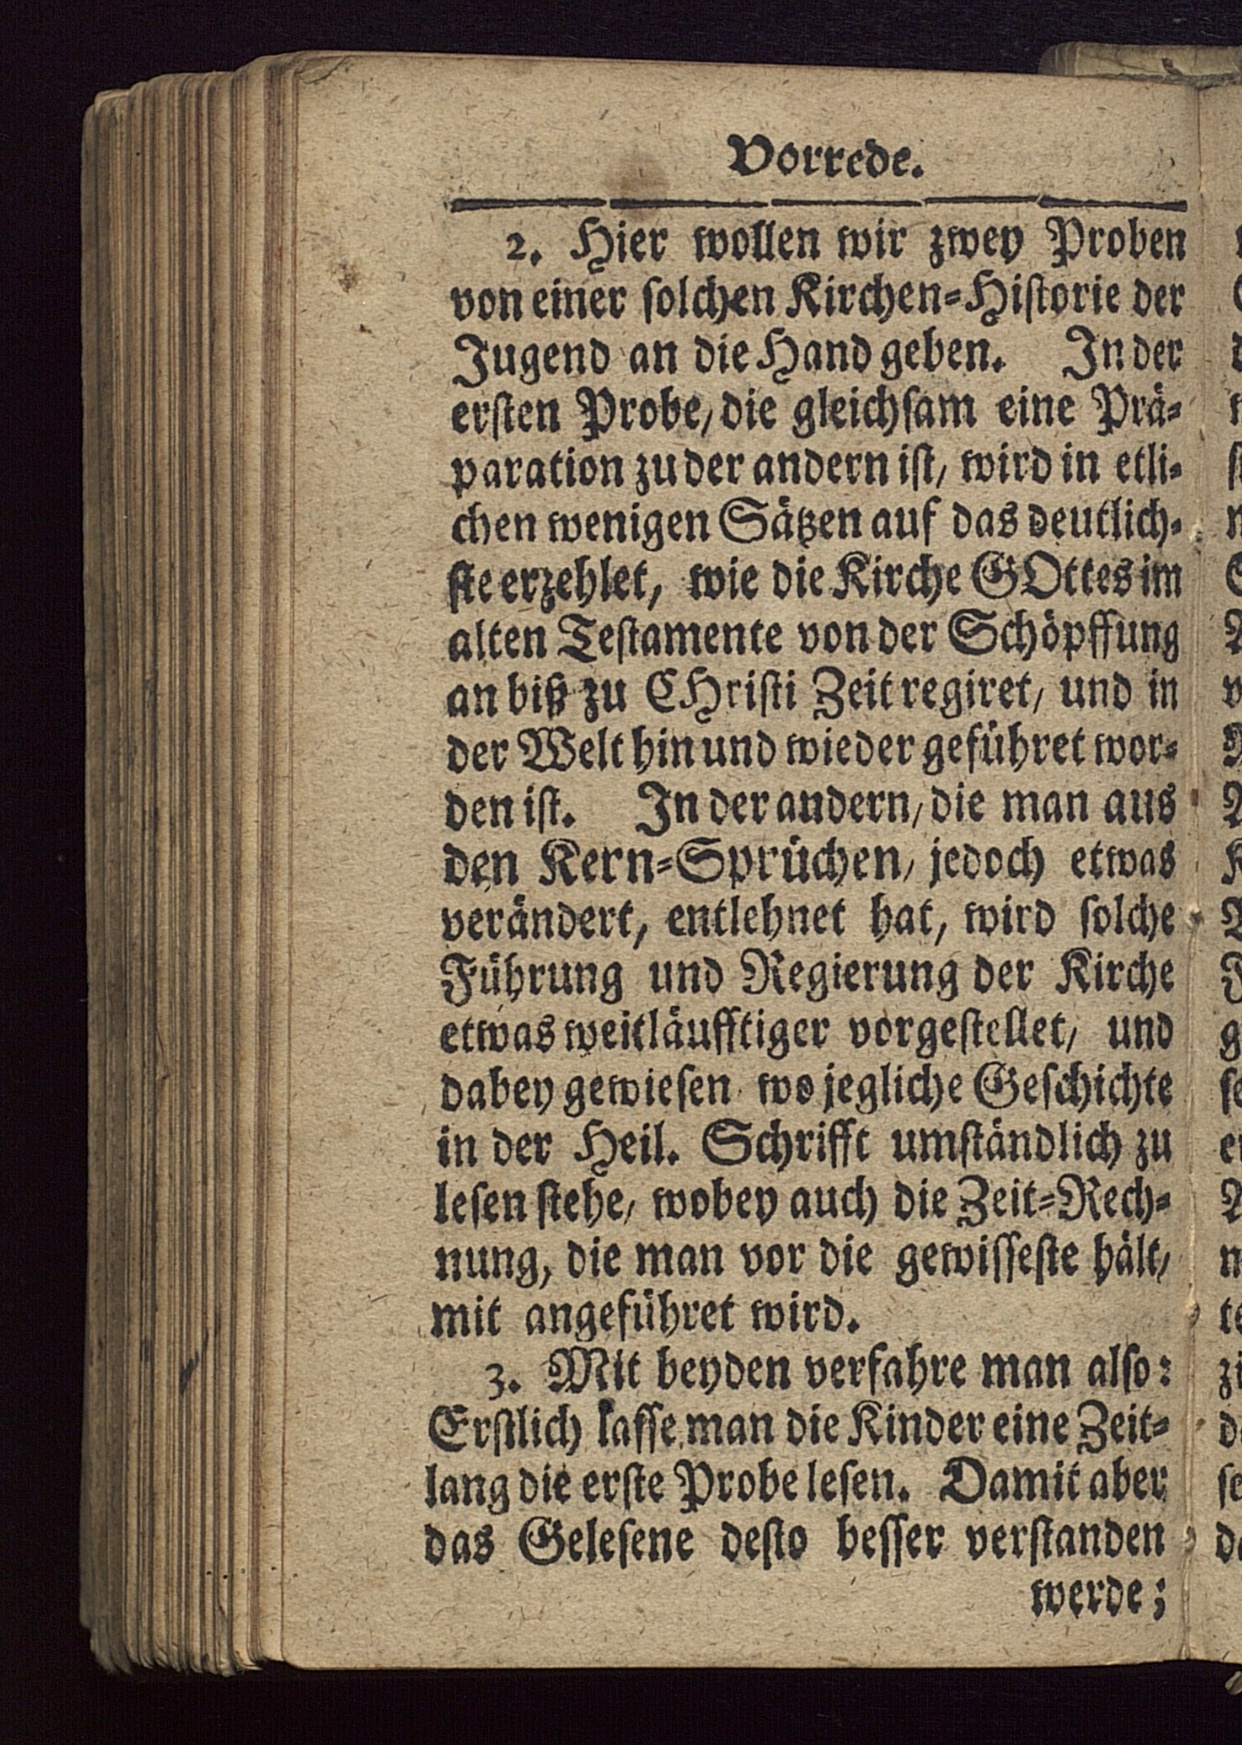 Vorrede.
2. Hier wollen wir zwey Proben
von einer solchen Kirchen-Historie der
Jugend an die Hand geben. In der
ersten Probe/ die gleichsam eine Prä-
paration zu der andern ist/ wird in etli-
chen wenigen Sätzen auf das deutlich-
ste erzehlet, wie die Kirche GOttes im
alten Testamente von der Schöpffung
an biß zu CHristi Zeit regiret/ und in
der Welt hin und wieder geführet wor-
den ist. In der andern/ die man aus
den Kern-Sprüchen/ jedoch etwas
verändert, entlehnet hat, wird solche
Führung und Regierung der Kirche
etwas weitläufftiger vorgestellet/ und
dabey gewiesen wo jegliche Geschichte
in der Heil. Schrifft umständlich zu
lesen stehe/ wobey auch die Zeit-Rech-
nung, die man vor die gewisseste hält/
mit angeführet wird.
3. Mit beyden verfahre man also:
Erstlich lasse man die Kinder eine Zeit-
lang die erste Probe lesen. Damit aber
das Gelesene desto besser verstanden
werde;